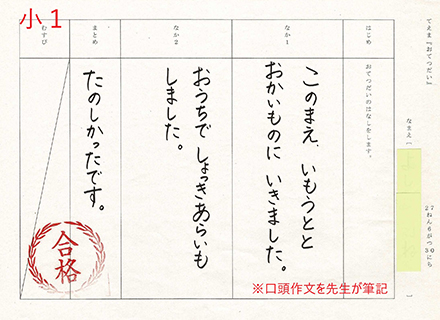 小1
てえま『おてつだい』
なまえ(
)
27ねん6がつ30にち
はじめ
おてつだいのはなしをします。
なか1
このまえ、いもうとと
おかいものに いきました。
なか2
おうちで しょっきあらいも
しました。
まとめ
たのしかったです。
むすび
合格
※口頭作文を先生が筆記